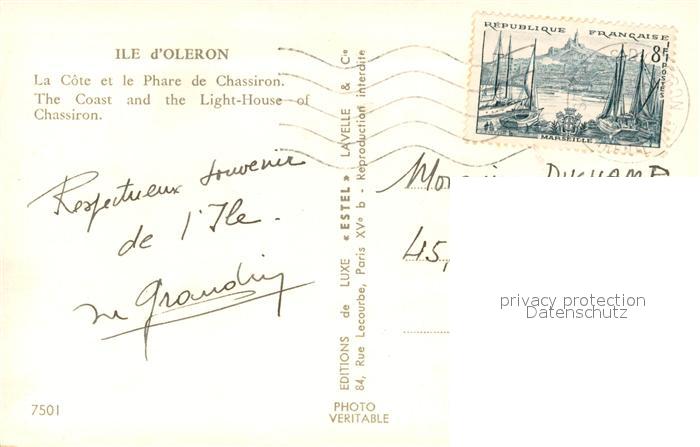 ILE d'OLERON
La Côte et le Phare de Chassiron.
The Coast and the Light-House of
Chassiron.
Respectueux souvenir
de l'Ile.
7501
EDITIONS de LUXE « ESTEL » LAVELLE & Cie
84, Rue Lecourbe, Paris XVe b - Reproduction interdite
PHOTO
VERITABLE
RÉPUBLIQUE FRANÇAISE
8F
POSTES
MARSEILLE
45,
privacy protection
Datenschutz